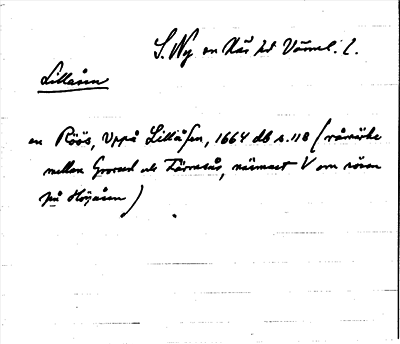 S. Ny sn Näs hd Värml. l.
Lillåsen
en Röös, Uppå Lillåsen, 1664 db s. 118 (råmärke
mellan Grorud och Färmsås, närmast V om rösen
på Höjåsen)